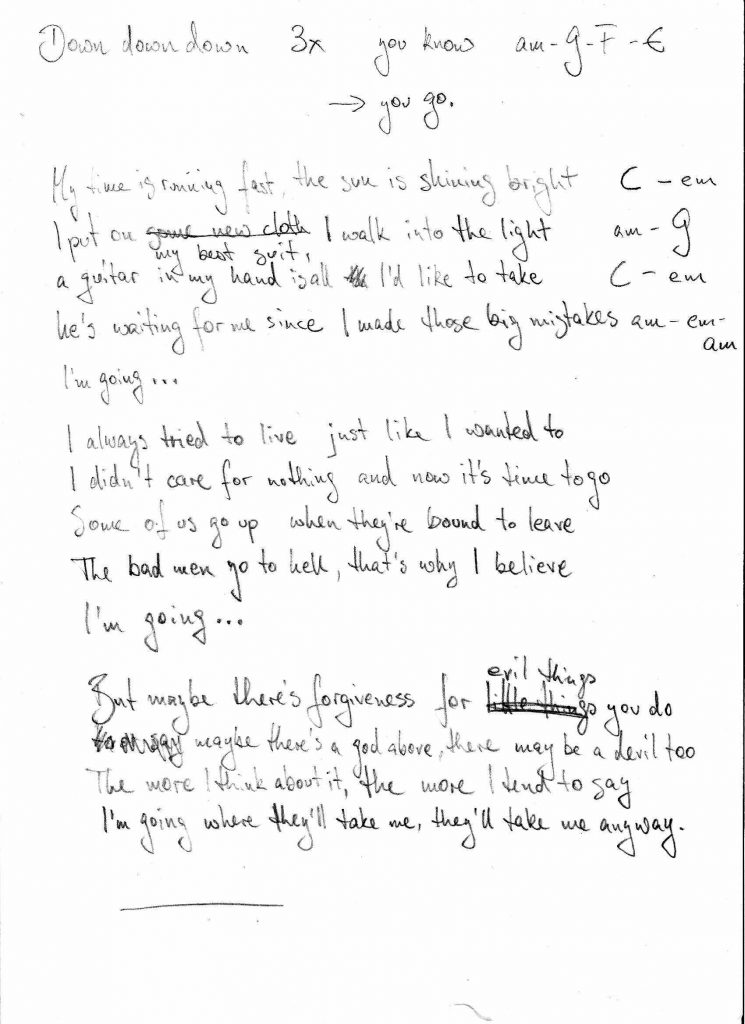 Down down down 3x you know am - G - F - E
→ you go.
My time is running fast, the sun is shining bright C - em
I put on some new cloth I walk into the light am - G
my best suit,
a guitar in my hand is all I'd like to take C - em
he's waiting for me since I made those big mistakes am - em -
am
I'm going...
I always tried to live just like I wanted to
I didn't care for nothing and now it's time to go
Some of us go up when they're bound to leave
The bad men go to hell, that's why I believe
I'm going...
evil things
But maybe there's forgiveness for little things you do
maybe there's a god above, there may be a devil too
The more I think about it, the more I tend to say
I'm going where they'll take me, they'll take me anyway.